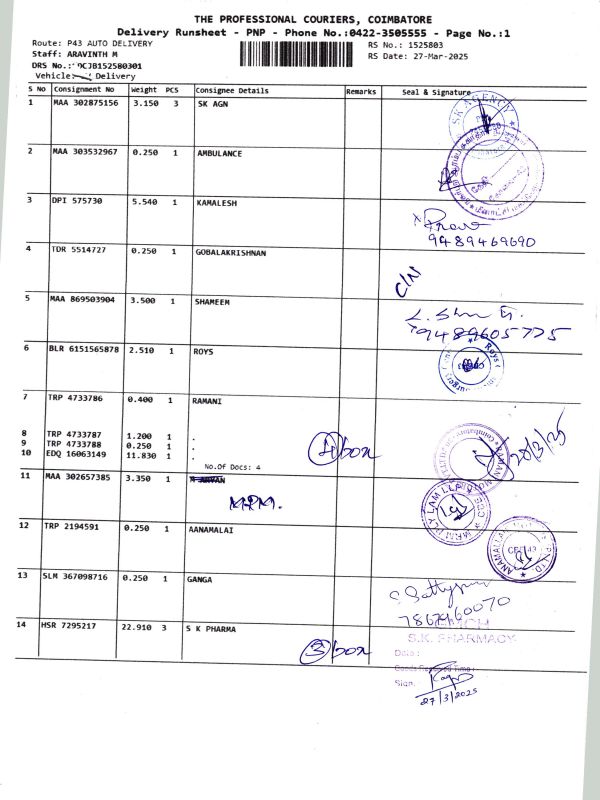 THE PROFESSIONAL COURIERS, COIMBATORE
Delivery Runsheet - PNP - Phone No.:0422-3505555 - Page No.:1
Route: P43 AUTO DELIVERY RS No.: 1525803
Staff: ARAVINTH M RS Date: 27-Mar-2025
DRS No.: DCJB152580301
Vehicle: Delivery
S No Consignment No Weight PCS Consignee Details Remarks Seal & Signature
1 MAA 302875156 3.150 3 SK AGN
SK AGENCY
2 MAA 303532967 0.250 1 AMBULANCE
3 DPI 575730 5.540 1 KAMALESH
9489469690
4 TDR 5514727 0.250 1 GOBALAKRISHNAN
C/N
5 MAA 869503904 3.500 1 SHAMEEM
9489605775
6 BLR 6151565878 2.510 1 ROYS
7 TRP 4733786 0.400 1 RAMANI
8 TRP 4733787 1.200 1 .
9 TRP 4733788 0.250 1 .
10 EDQ 16063149 11.830 1 .
4 box
28/3/25
No.Of Docs: 4
11 MAA 302657385 3.350 1
MPM.
12 TRP 2194591 0.250 1 AANAMALAI
13 SLM 367098716 0.250 1 GANGA
14 HSR 7295217 22.910 3 S K PHARMA
3 box
S.K. PHARMACY
Date :
Sign.
27/3/2025